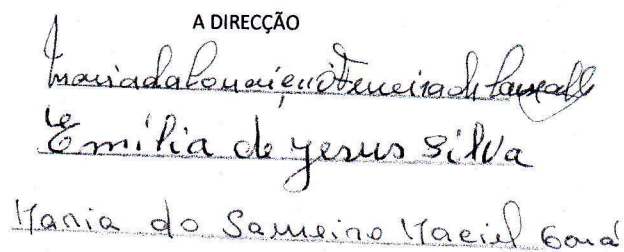 A DIRECÇÃO
Maria da Conceição Ferreira de
Emília de Jesus Silva
Maria do Sameiro Maciel